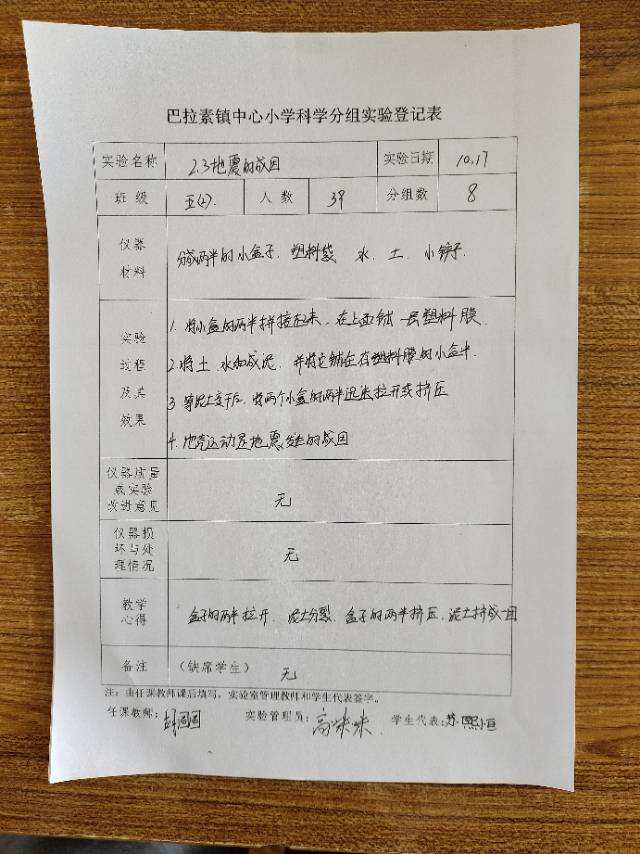 巴拉素镇中心小学科学分组实验登记表
实验名称 2.3地震的成因 实验日期 10.17
班级 五(4). 人数 39 分组数 8
仪器 材料 分成两半的小盒子. 塑料袋 水. 土. 小铲子.
实验过程及其效果
1. 将小盒的两半拼接起来, 在上面铺一层塑料膜.
2. 将土 水加成泥, 并将它铺在有塑料膜的小盒中.
3 等泥土变干后, 将两个小盒的两半迅速拉开或挤压
4. 地壳运动是地震发生的成因
仪器质量
或实验
改进意见 无
仪器损
坏与处
理情况 无
教学
心得 盒子的两半拉开, 泥土分裂. 盒子的两半挤压, 泥土挤成一团
备注 (缺席学生) 无
注:由任课教师课后填写,实验室管理教师和学生代表签字。
任课教师: 实验管理员: 高咪咪 学生代表: 苏熙恒